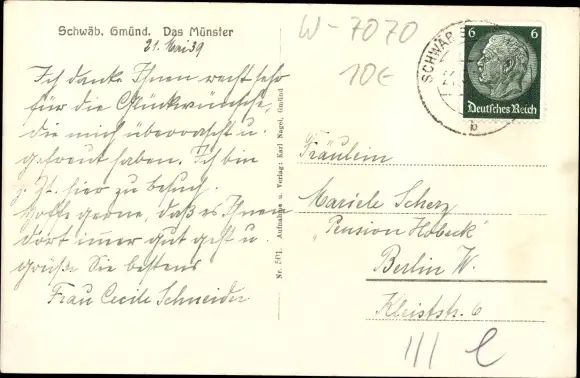 Schwäb. Gmünd. Das Münster
21. Mai 39
Ich danke Ihnen recht sehr
für die Glückwünsche,
die mich überrascht u.
gefreut haben. Ich bin
z. Zt. hier zu Besuch.
Hoffe gerne, daß es Ihnen
dort immer gut geht u.
grüße Sie bestens
Frau Cecile Schneider
Nr. 501. Aufnahme u. Verlag: Karl Nagel, Gmünd
W-7070
10€
SCHWÄB.
b
6 6
Deutsches Reich
Fräulein
Mariele Scherz
"Pension Hobeck"
Berlin W.
Kleiststr. 6